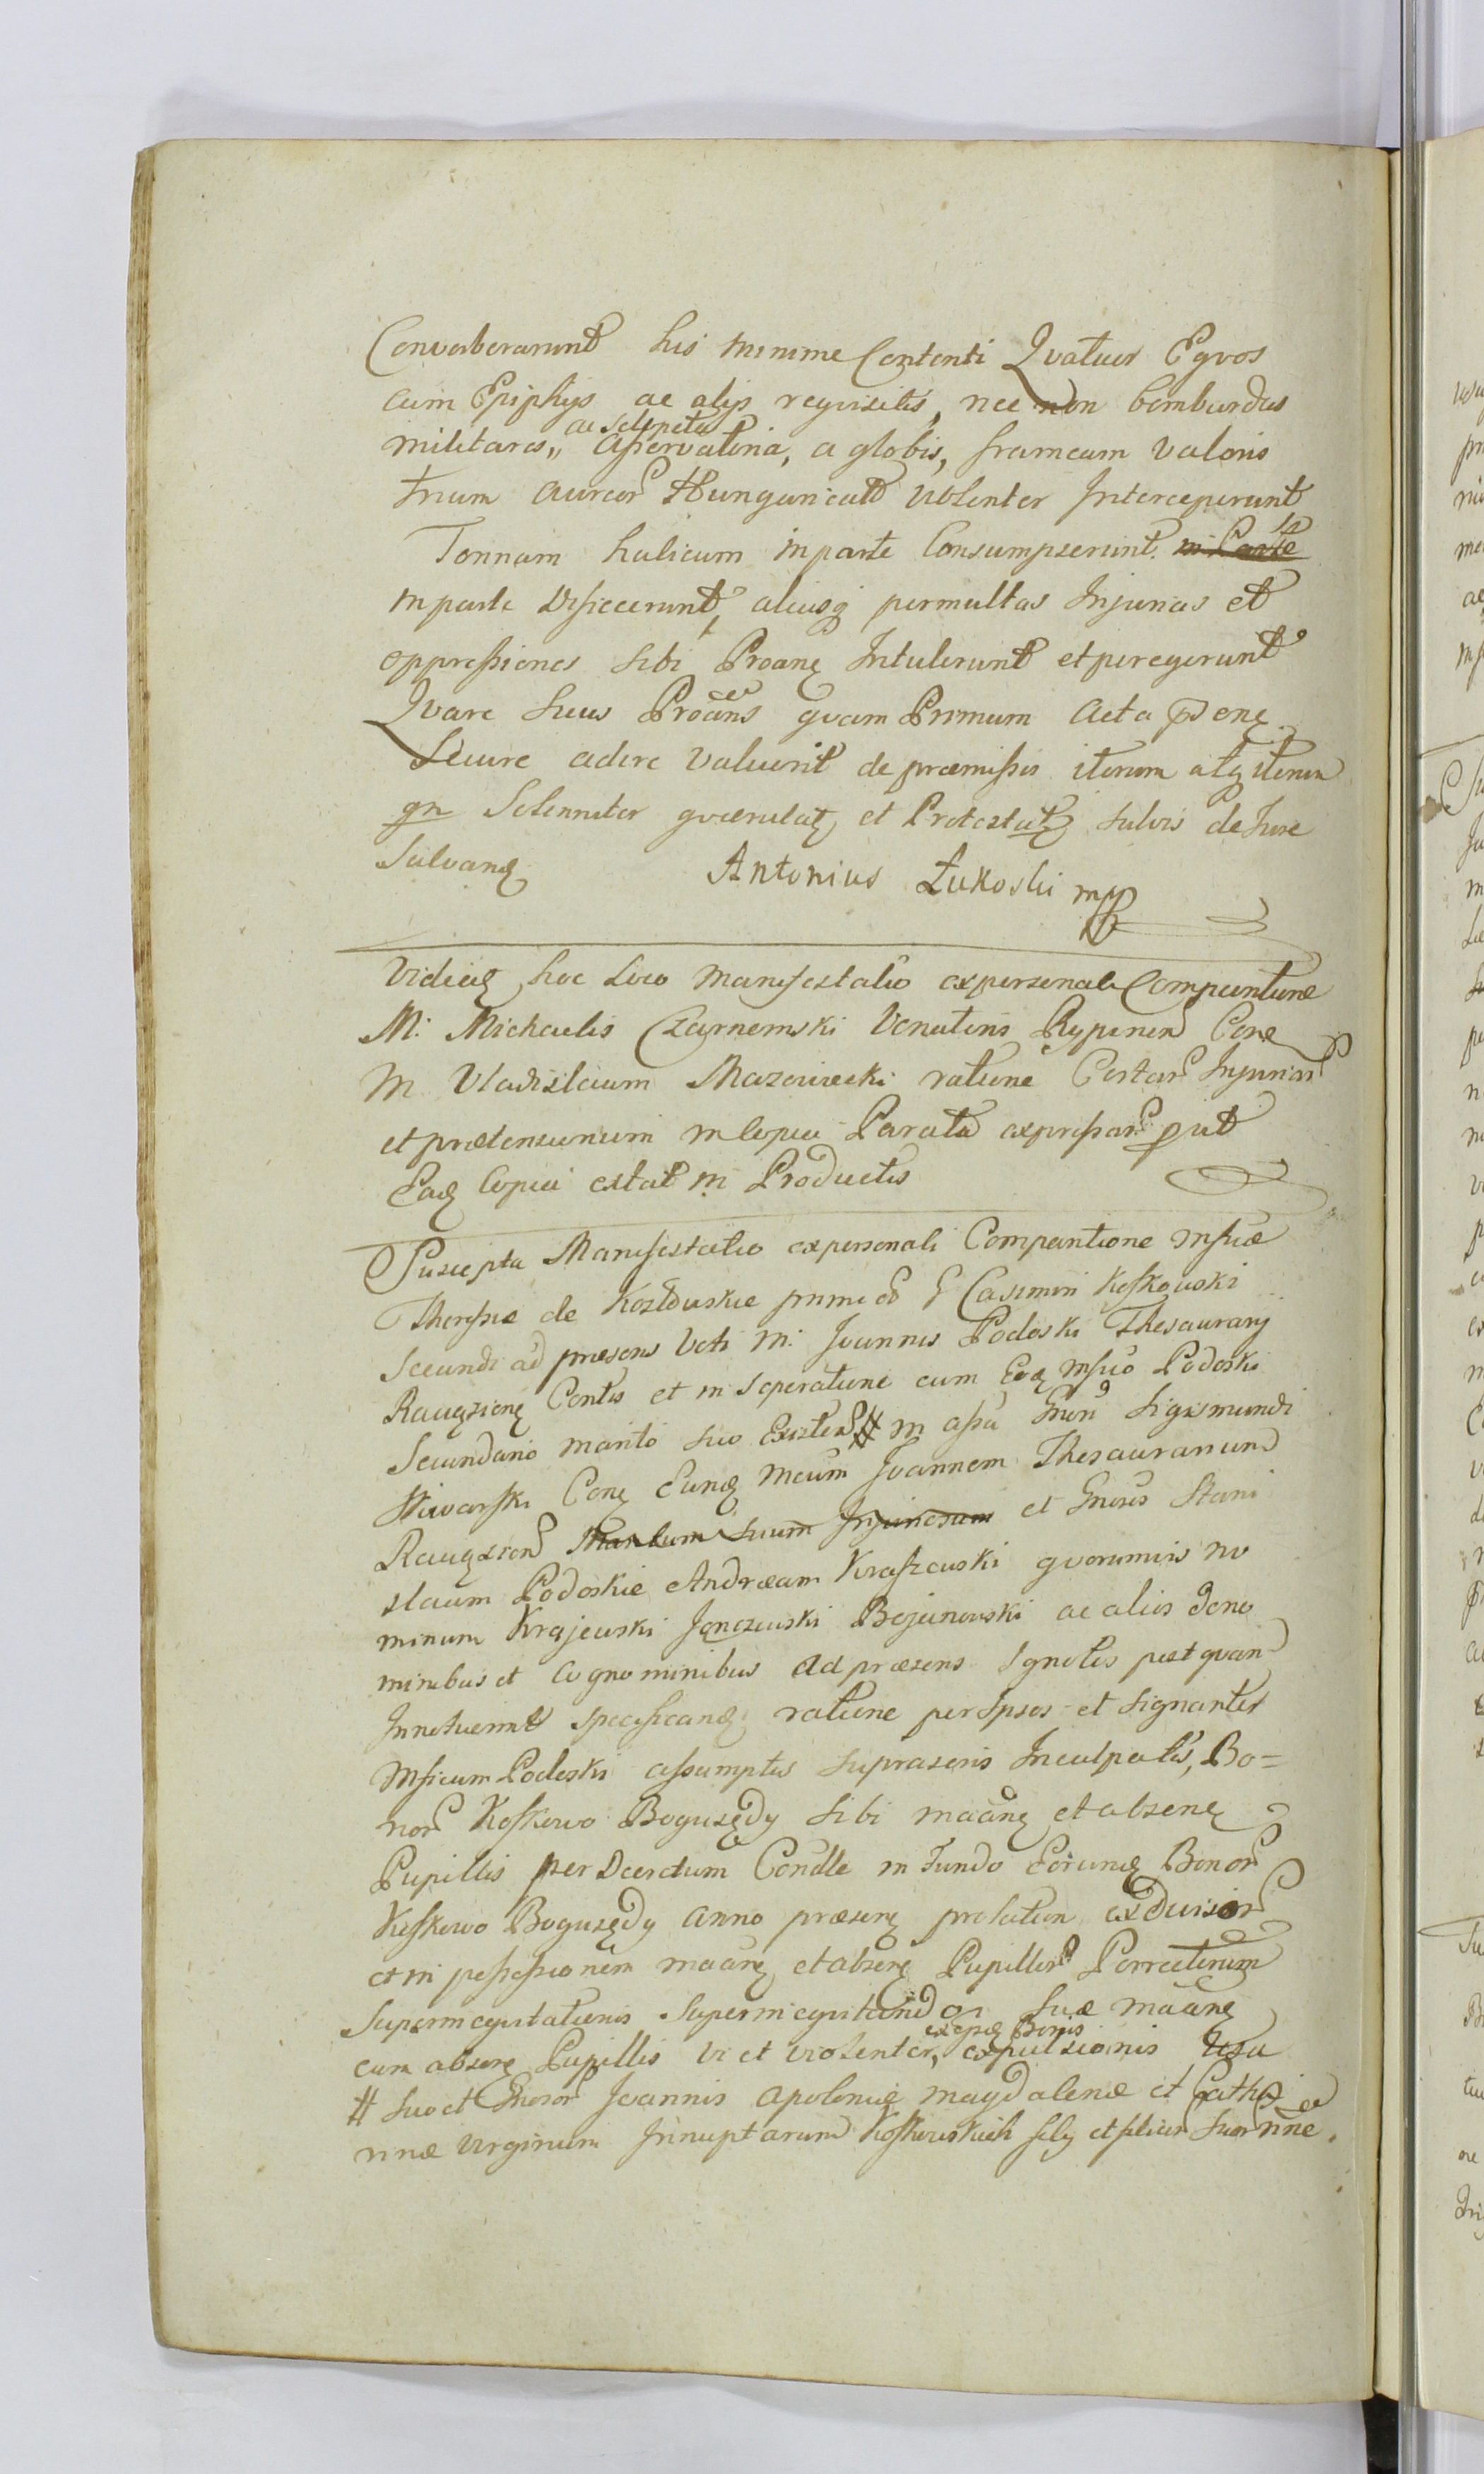 Converberarunt his minime Contenti Qvatuor Eqvos
cum Ephipijs ac alijs reqvisitis, nec non bombardas
militares,, ac selopeta aßervatoria, a globis, frameam valoris
trium aureor Hungaricals violenter Interceperunt
Tonnam halicum in parte Consumpserunt. in Parte
in parte disiecerunt, aliasq permultas Injurias et
oppreßiones sibi Proanę Intulerunt et peregerunt
Qvare suus Proans qvam Primum Acta
Secure adire valuerit de præmißis iterum atq iterum
gn Solenniter qværulatę et Protestatę salvis de Jure
Salvandę Antonius Łukoski mpp
Videatę hoc Loco Manifestatio ex personali Comparitione
M: Michaelis Czarnemski Venatoris Rypinen Cone
M Vladislaum Mazowiecki ratione Certar Injuriar
et prætensionum in Copia Parata expreßar put
Eadę Copia extat in Productis
Suscepta Manifestatio ex personali Comparitione
Thereßiæ de primi Casimiri Koßkowski
Secundi ad præsens Voti M: Joannis Podoski Thesaurarij
Raugzienę Contis et in Seperatione cum Podoski
Secundario marito suo Existen # in aßa Gnosi Sigismundi
Conę Eundę Joannem Thesaurarium
Raugzien Maritum suum et Gnosos Stani
slaum Podoskie Andream Kraszewski qvorumvis no
minum Krajewski Jęnczewski Bojanowski ac alios de no
minibus et Cognominibus ad præsens Ignotis postqvam
Innotuerint specificandę ratione per Ipsos et signanter
Podoski aßumptis supraseris Inculpatis, Bo=
nor Koßkowo Bogusędy sibi maanę et absenę
Pupillis per Decretum Condle in Fundo Eorundę Bonor
Koßkowo Bogusędy anno præsenę prolatum ex Divisior
et in poßeßionem maanę et absenę Pupillis Porrectorum
Superineqvitationis Superineqvitand suæ maanę
cum absenę Pupillis vi et violenter, ex epsę Bonis expulsionis
# suo et Gnosor Joannis Apoloniæ Magdalenæ et Catha
rinæ virginum Innuptarum Koßkowskich filij et filiar suar nne.